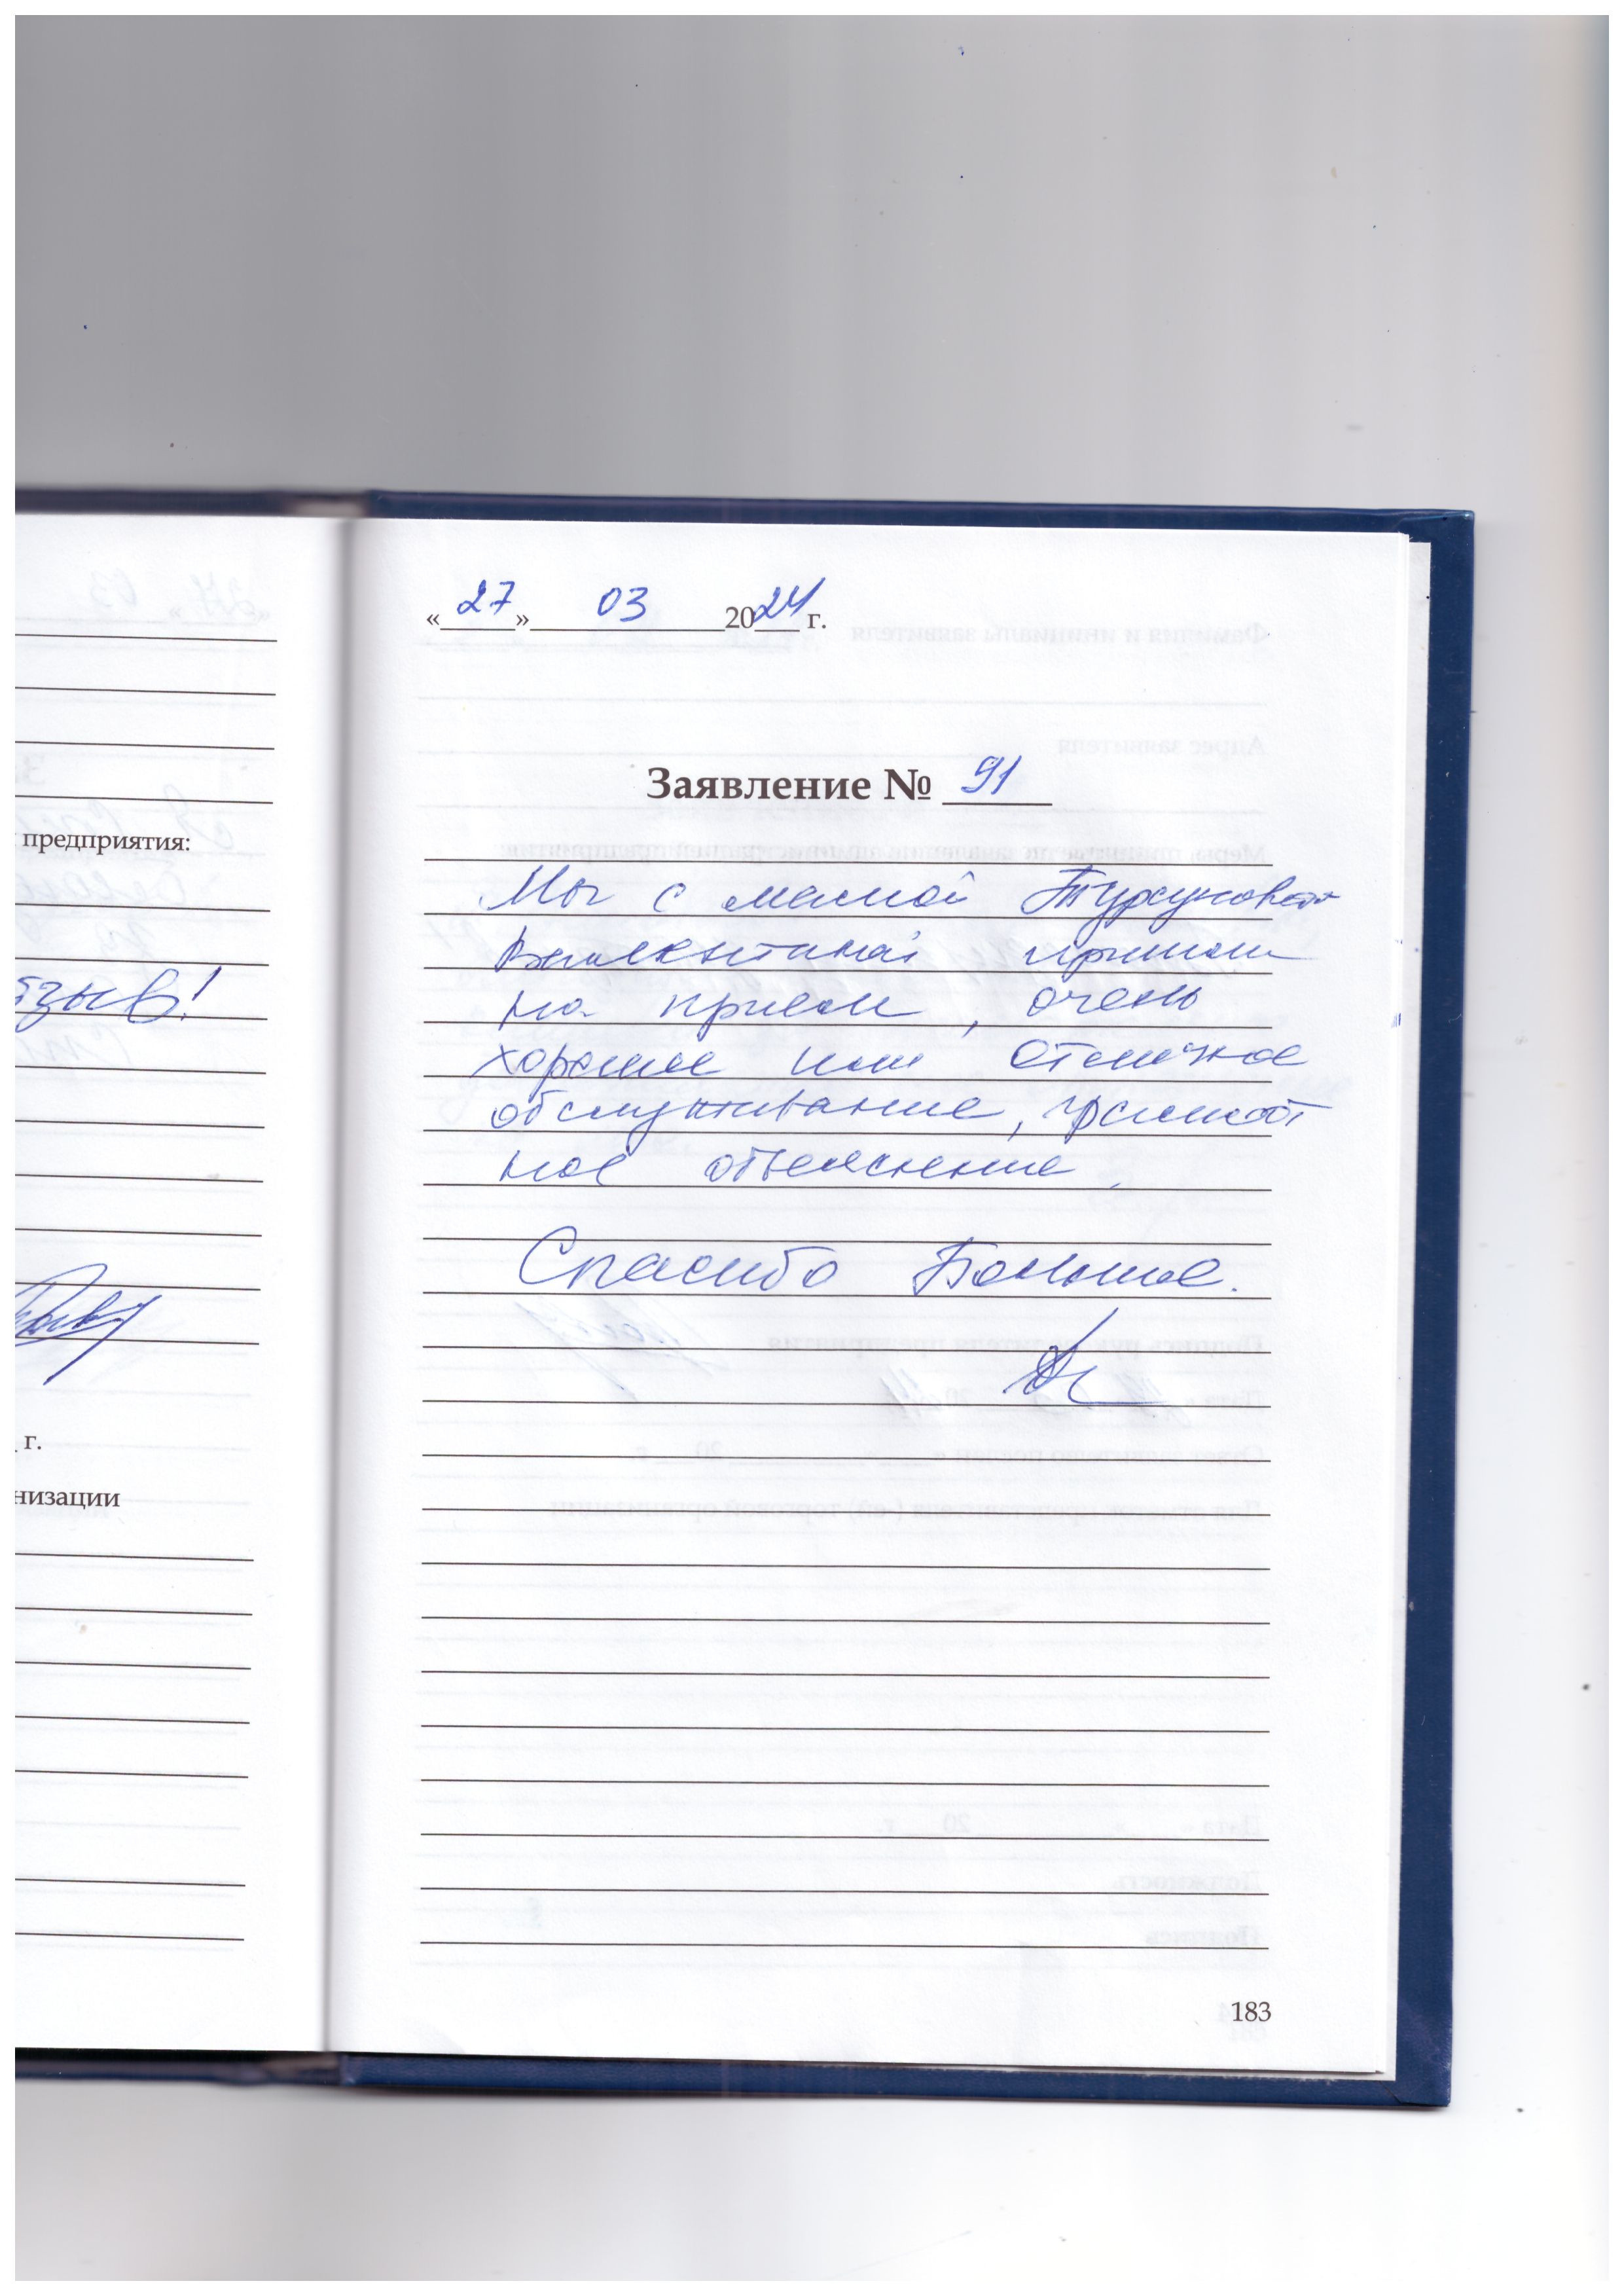 предприятия:
тзыв!
г.
низации
«27» 03 2024 г.
Заявление № 91
Мы с мамой Турсуновой
Валентиной пришли
на прием, очень
хорошее или отличное
обслуживание, грамот
ное объяснение.
Спасибо Большое.
183